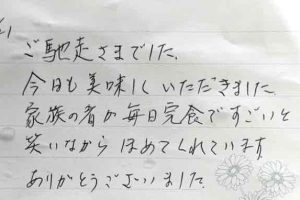 ご馳走さまでした.
今日も美味しくいただきました
家族の者が毎日完食ですごいと
笑いながらほめてくれています
ありがとうございました.